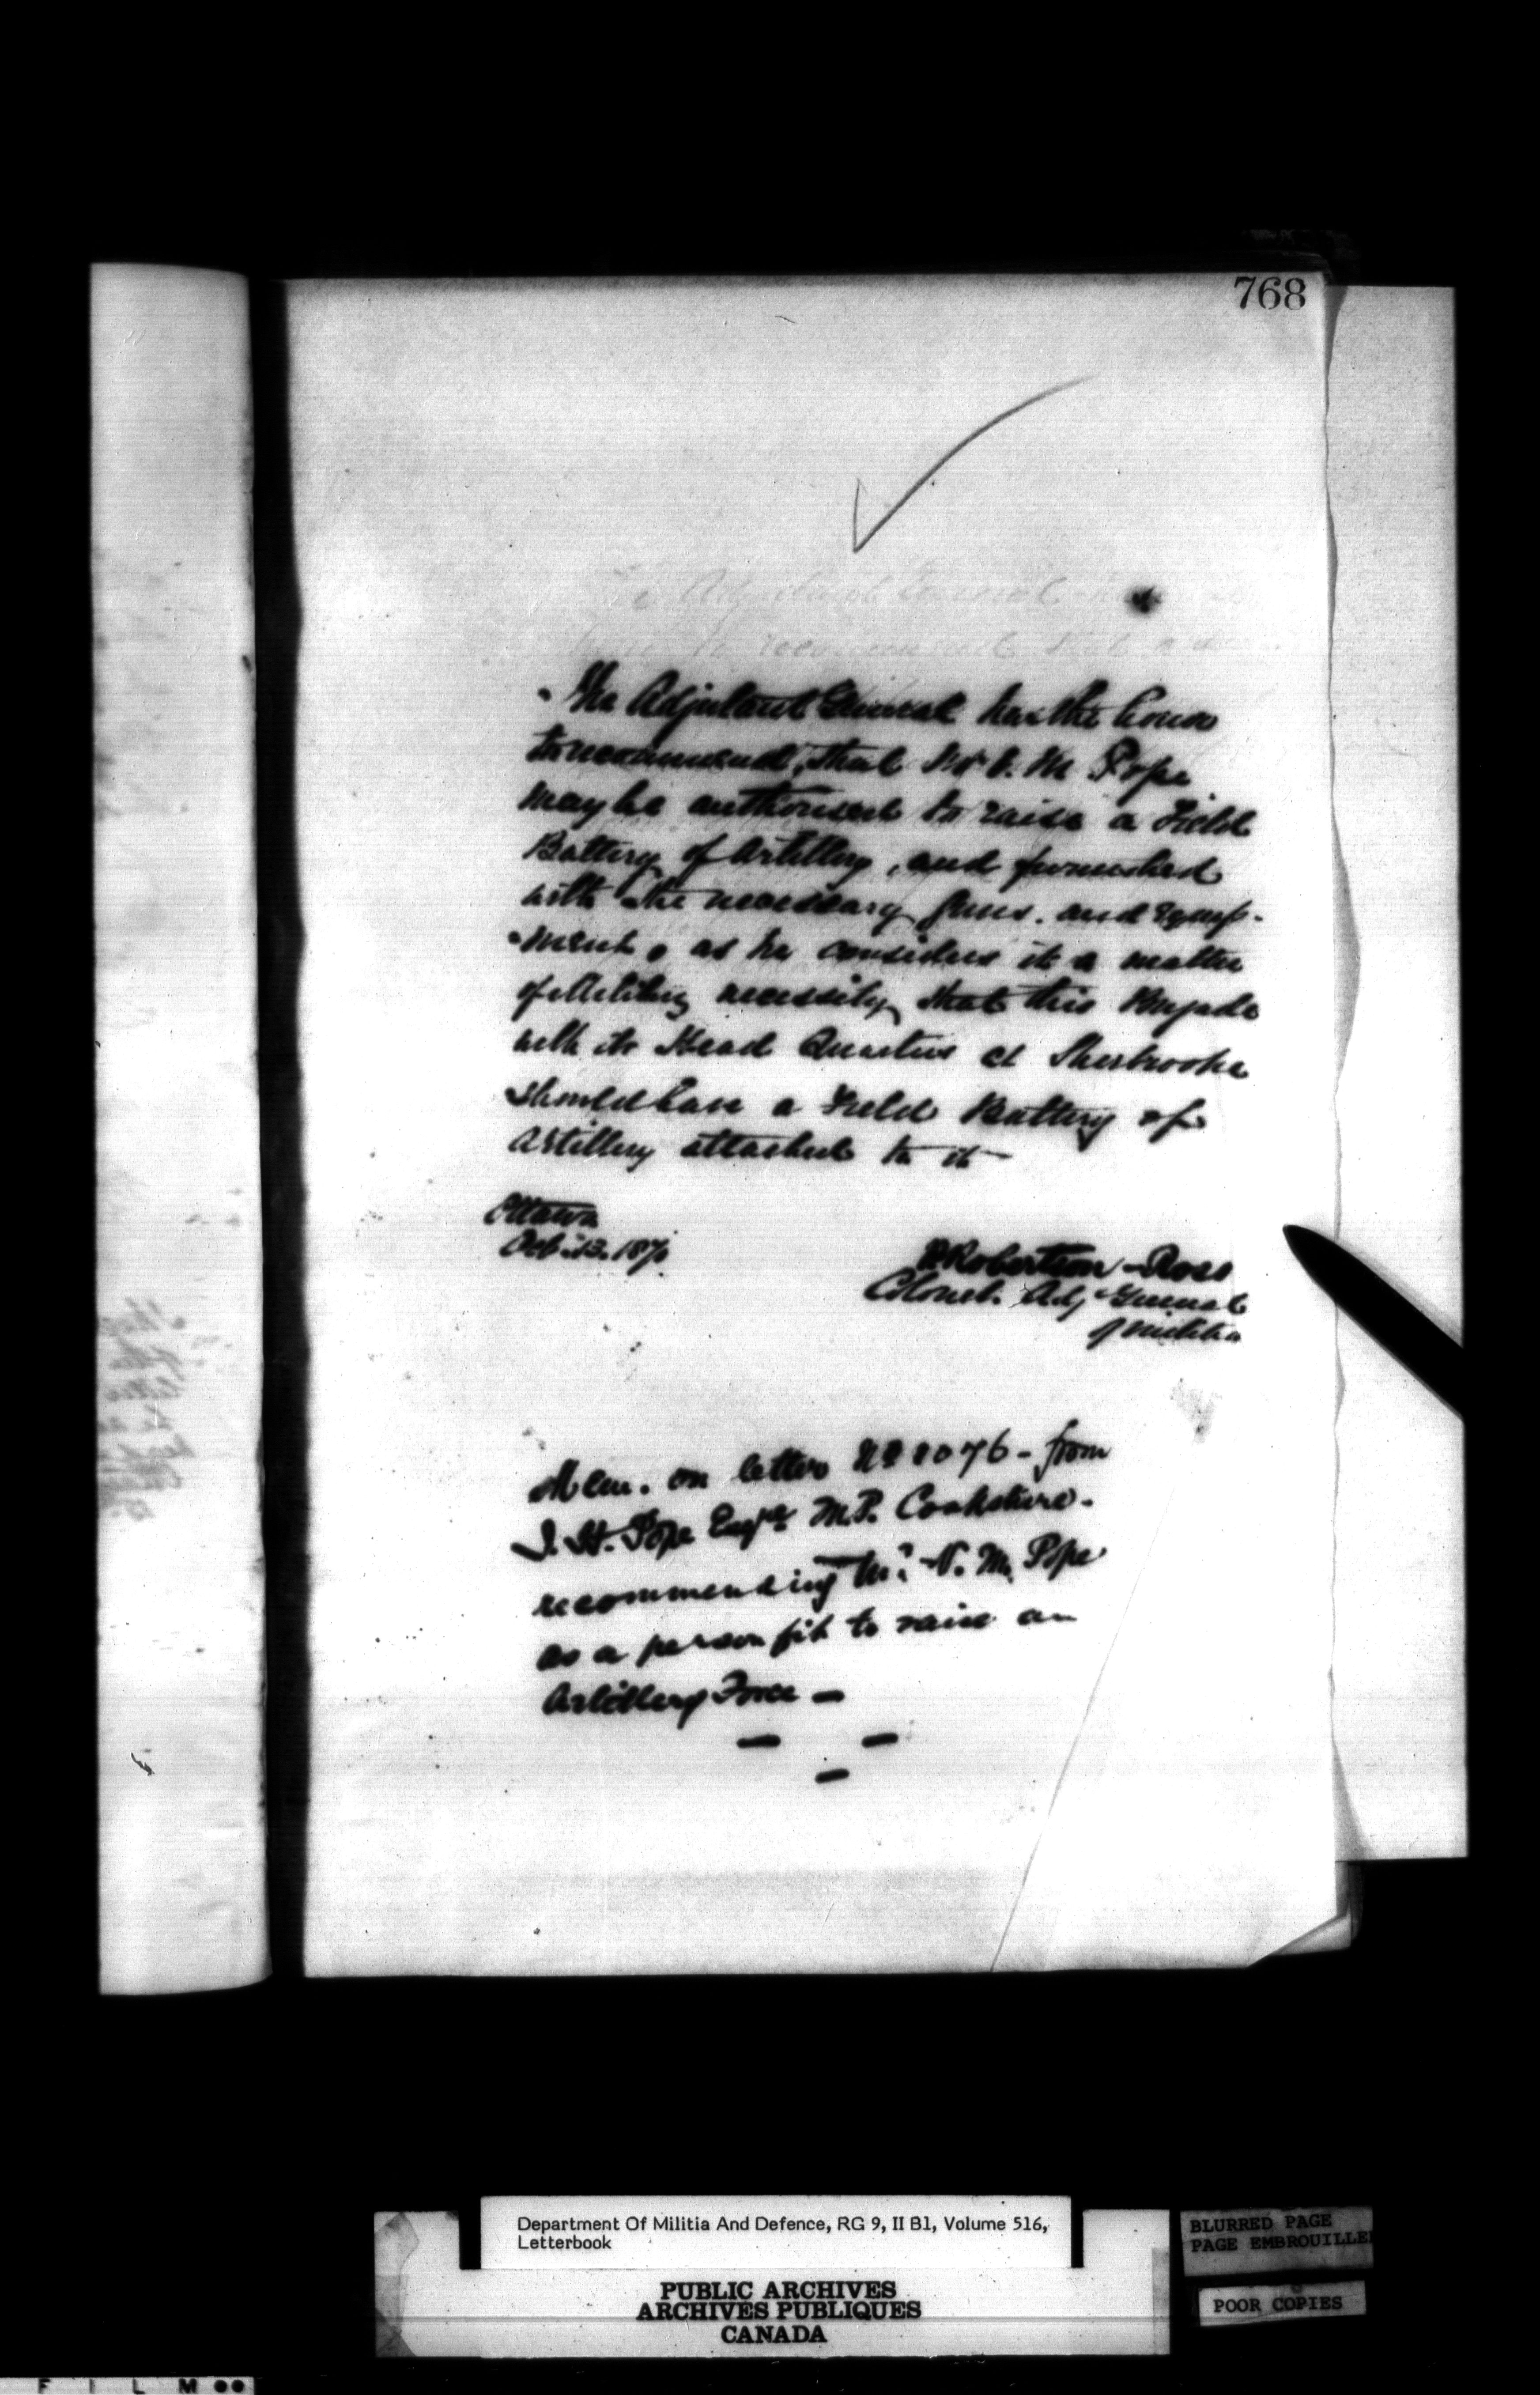 768
The Adjutant General has the honor
to recommend, that Mr V. M Pope
may be authorised to raise a Field
Battery of Artillery, and furnished
with the necessary Guns. and Equip-
-ment, as he considers it a matter
of Military necessity that this Brigade
with its Head Quarters at Sherbrooke
should have a Field Battery of
Artillery attached to it
Ottawa
Oct. 13. 1870
P Robertson-Ross
Colonel. Adjt General
of Militia
Mem. on letter No 1076 - from
J. H. Pope Esqre M.P. Cookshire.
recommending Mr V. M. Pope
as a person fit to raise an
Artillery Force —
Department Of Militia And Defence, RG 9, II B1, Volume 516,
Letterbook
PUBLIC ARCHIVES
ARCHIVES PUBLIQUES
CANADA
BLURRED PAGE
PAGE EMBROUILLEE
POOR COPIES
F I L M